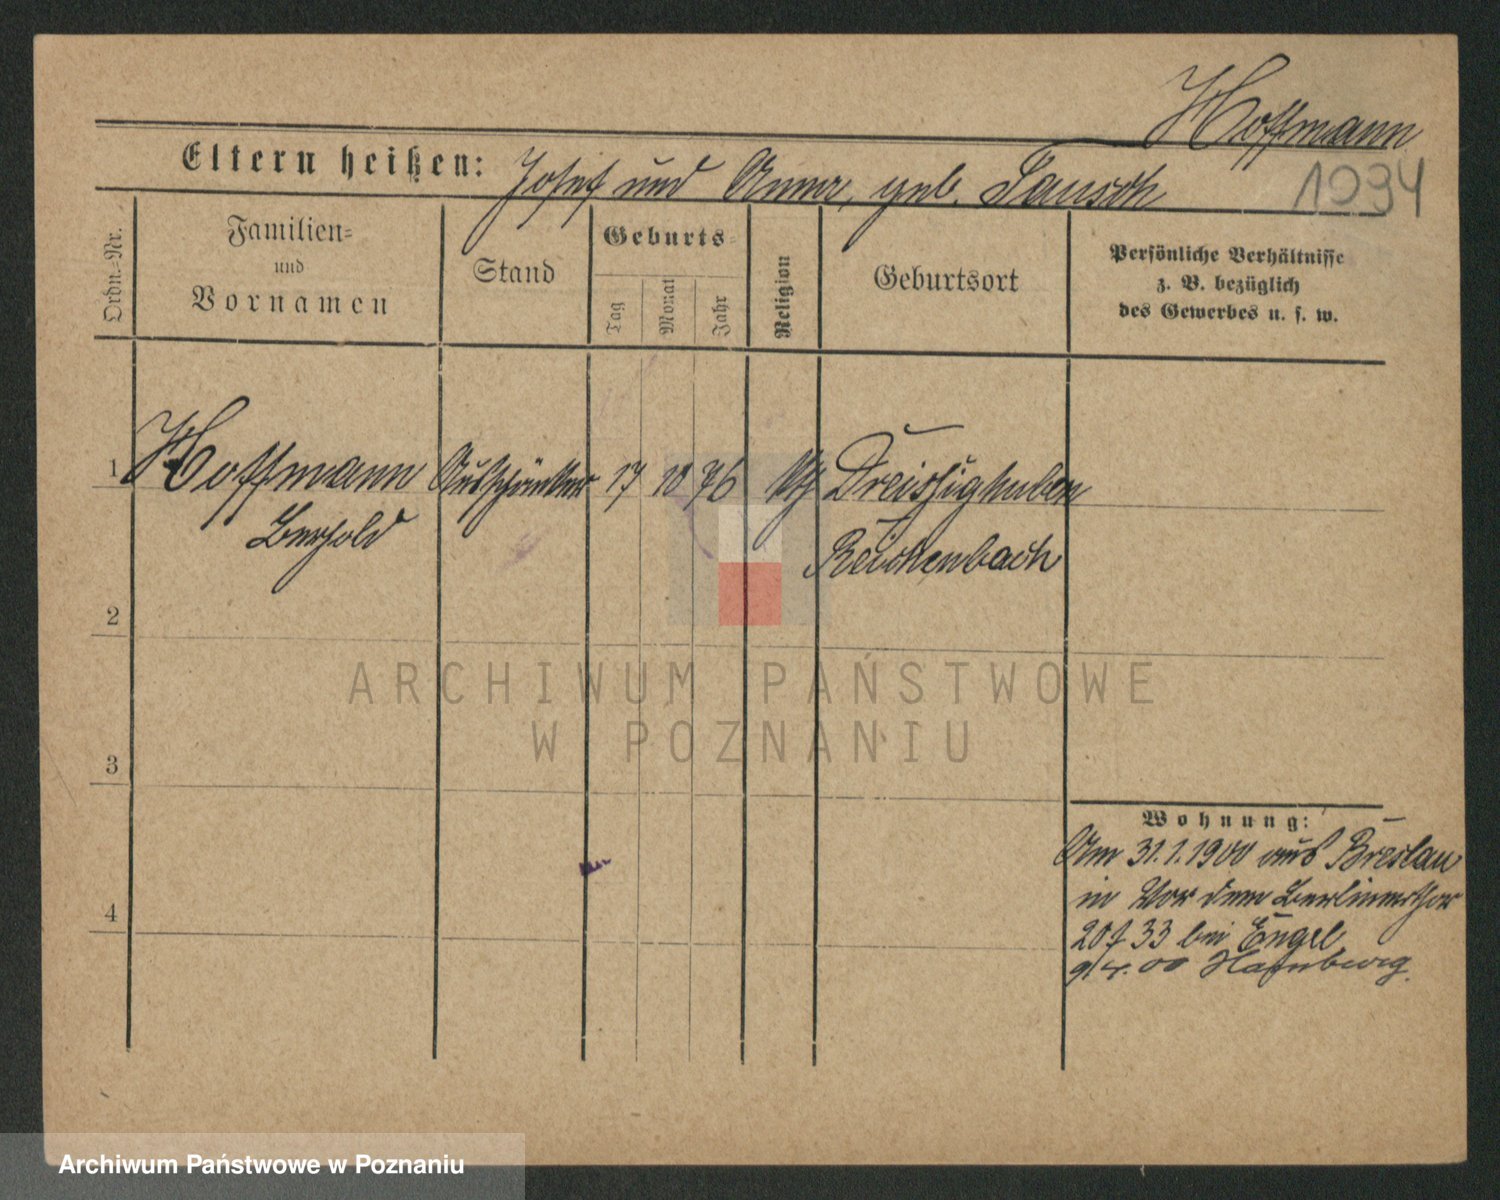 Hoffmann
Eltern heißen: Josef und Anna, geb. Tausch
1034
Ordn.=Nr.
Familien=
und
Vornamen
Stand
Geburts=
Tag
Monat
Jahr
Religion
Geburtsort
Persönliche Verhältnisse
z. B. bezüglich
des Gewerbes u. s. w.
1 Hoffmann Ausschänker 17 10 76 kth Dreissighuben
Berthold Reichenbach
2
3
4
Wohnung:
Am 31.1.1900 aus Breslau
in Vor dem Berlinerthor
33 bei Engel
00 Hamburg.
ARCHIWUM PAŃSTWOWE
W POZNANIU
Archiwum Państwowe w Poznaniu